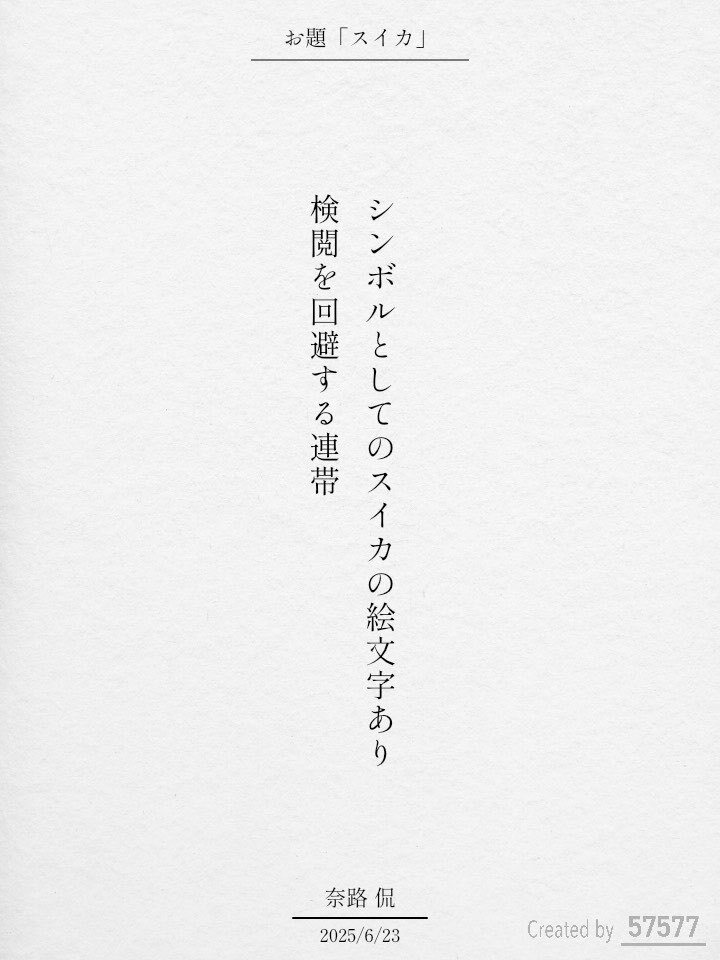 お題「スイカ」
シンボルとしてのスイカの絵文字あり
検閲を回避する連帯
奈路 侃
2025/6/23
Created by 57577